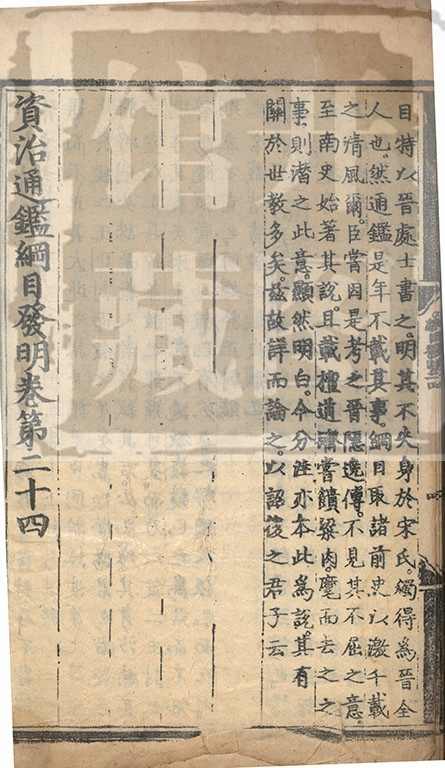 目特以晉處士書之明其不失身於宋氏獨得為晉全
人也然通鑑是年不載其事綱目取諸前史以激千載
之清風爾臣嘗因是考之晉隱逸傳不見其不屈之意
至南史始著其說且載檀道濟嘗饋粱肉麾而去之之
事則潛之此意顯然明白今分註亦本此為說其有
關於世教多矣茲故詳而論之以詔後之君子云
資治通鑑綱目發明卷第二十四